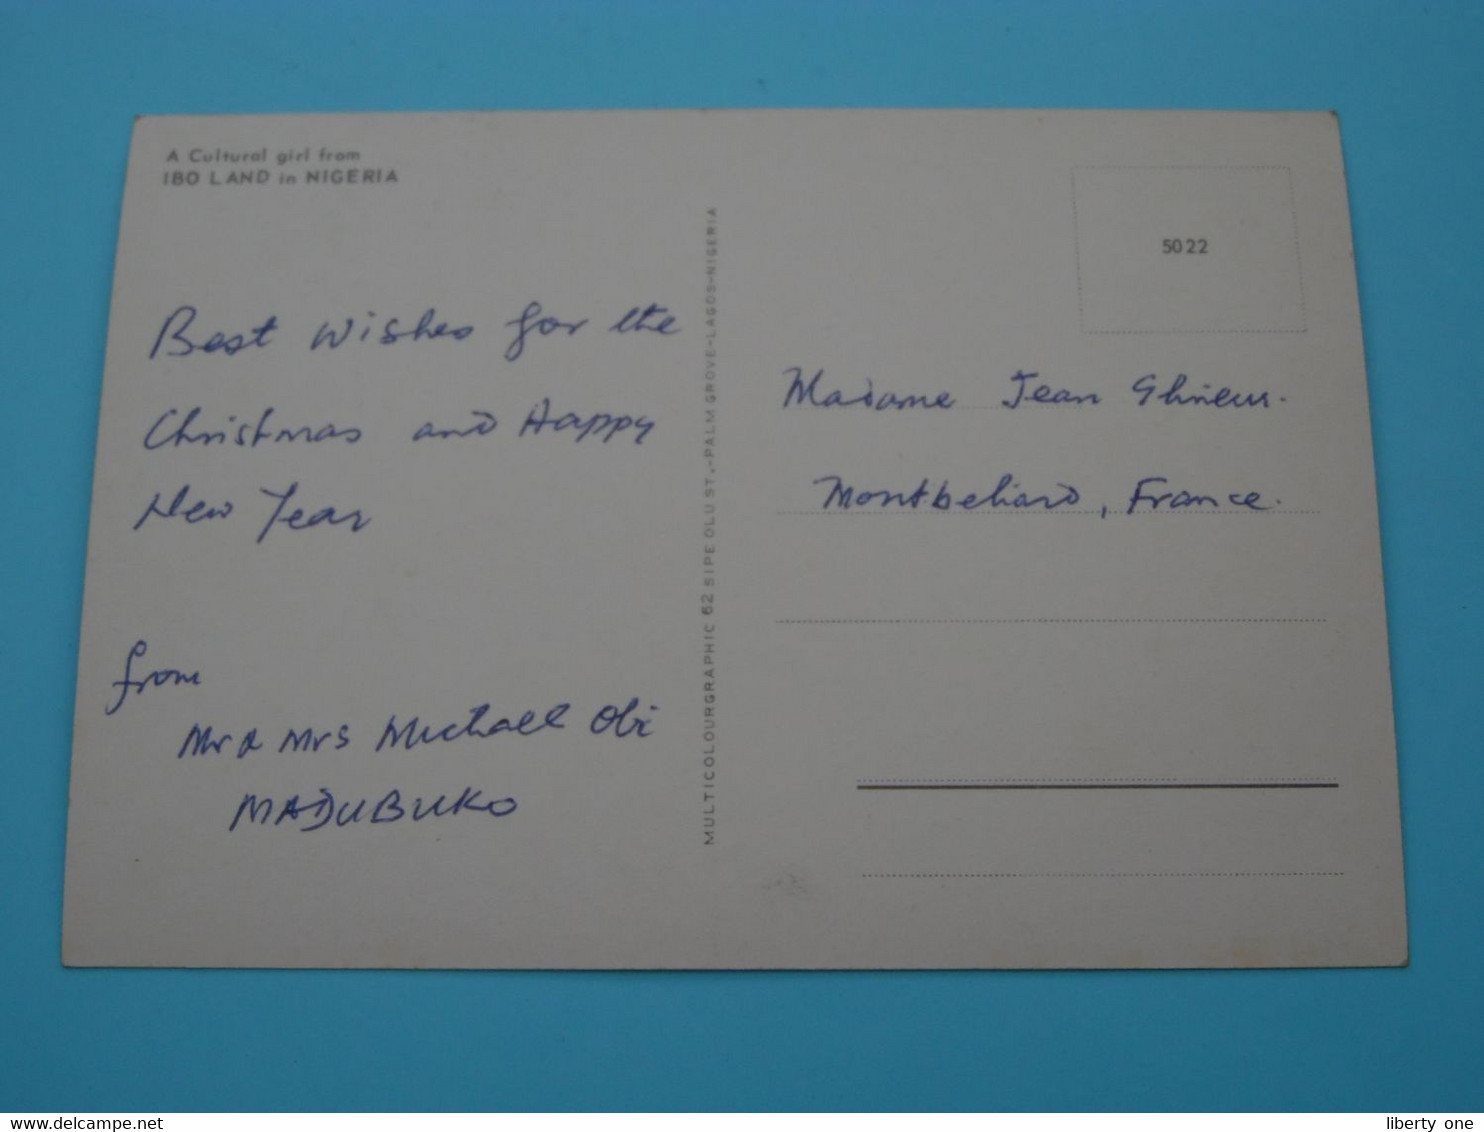 A Cultural girl from
IBO LAND in NIGERIA
Best Wishes for the
Christmas and Happy
New Year
from
Mr & Mrs Michael Obi
MADUBUKO
MULTICOLOURGRAPHIC 62 SIPE OLU ST.,-PALM GROVE-LAGOS-NIGERIA
5022
Madame Jean
Montbeliard, France.
delcampe.net
liberty one